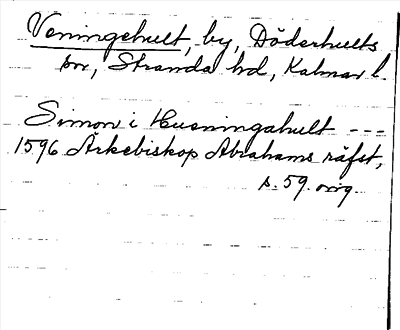 Veningehult, by, Döderhults
sn, Stranda hd, Kalmar l.
Simon i Hueningahult ---
1596 Ärkebiskop Abrahams räfst,
s. 59. orig.